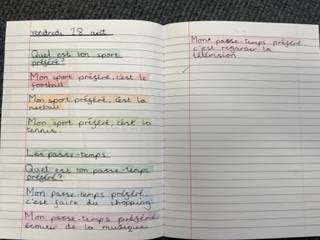 vendredi 28 août
Quel est ton sport
préféré?
Mon sport préféré, c'est le
football.
Mon sport préféré, c'est la
netball.
Mon sport préféré, c'est la
tennis.
Les passe-temps.
Quel est ton passe-temps
préféré?
Mon passe-temps préféré,
c'est faire du shopping.
Mon passe-temps préféré
écouter de la musique.
Mon passe-temps préféré
c'est regarder la
télévision